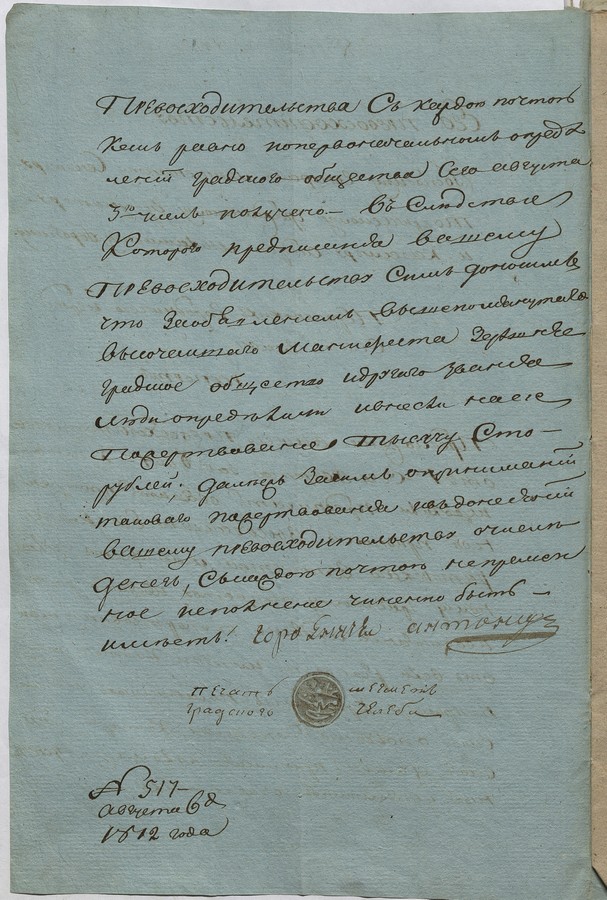 Превосходительства Съ каждою почтою
Кемъ равно попервоначальномъ опред
ленїи градского общества Сего августа
3го чиселъ получено — Въ Слѣдствіе
Которого предписания вашему
Превосходительству Симъ доношу
что Заобъявлениемъ вышепомянутаго
высочайшаго Манифеста Здѣшнее
градское общество идругого звания
люди определили ивнесли на
пожертвование Тысячу Сто —
рублей; далѣе Засимъ опринимании
таковаго пожертвования идонесении
вашему превосходительству очислѣ
денегъ, Скаждою почтою непремен
ное исполнение чинено быть —
имѣетъ! городничей антони
печать
градского
мегметъ
челеби
N 517
августа 6 д
1812 года